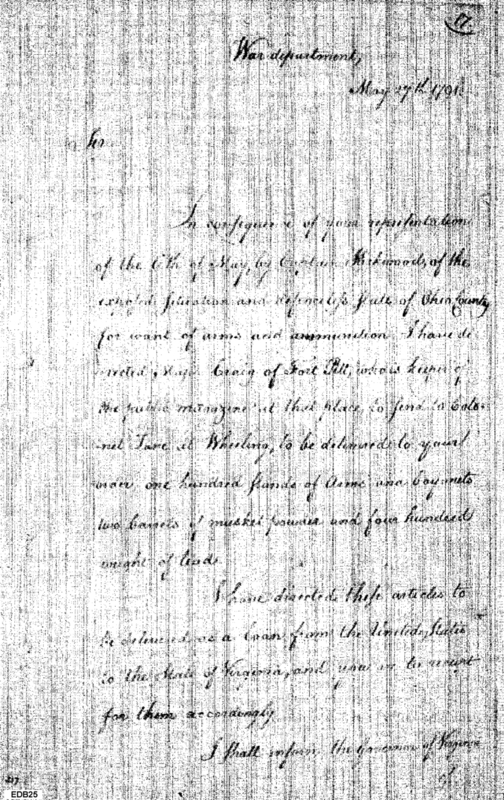 17
War department,
May 27th 1791.
Sir
In consequence of your representation
of the 6th of May, by Captain Kirkwood, of the
exposed situation and defenceless State of Ohio County
for want of arms and ammunition I have di-
rected Major Craig of Fort Pitt, who is keeper of
the public magazine at that place, to send to Colo-
nel Zane at Wheeling, to be delivered to your
order one hundred stands of Arms and bayonets
two barrels of musket powder and four hundred
weight of lead.
I have directed these articles to
be delivered as a loan from the United States
to the State of Virginia, and you are to receipt
for them accordingly
I shall inform the Governor of Virginia
of
EDB25